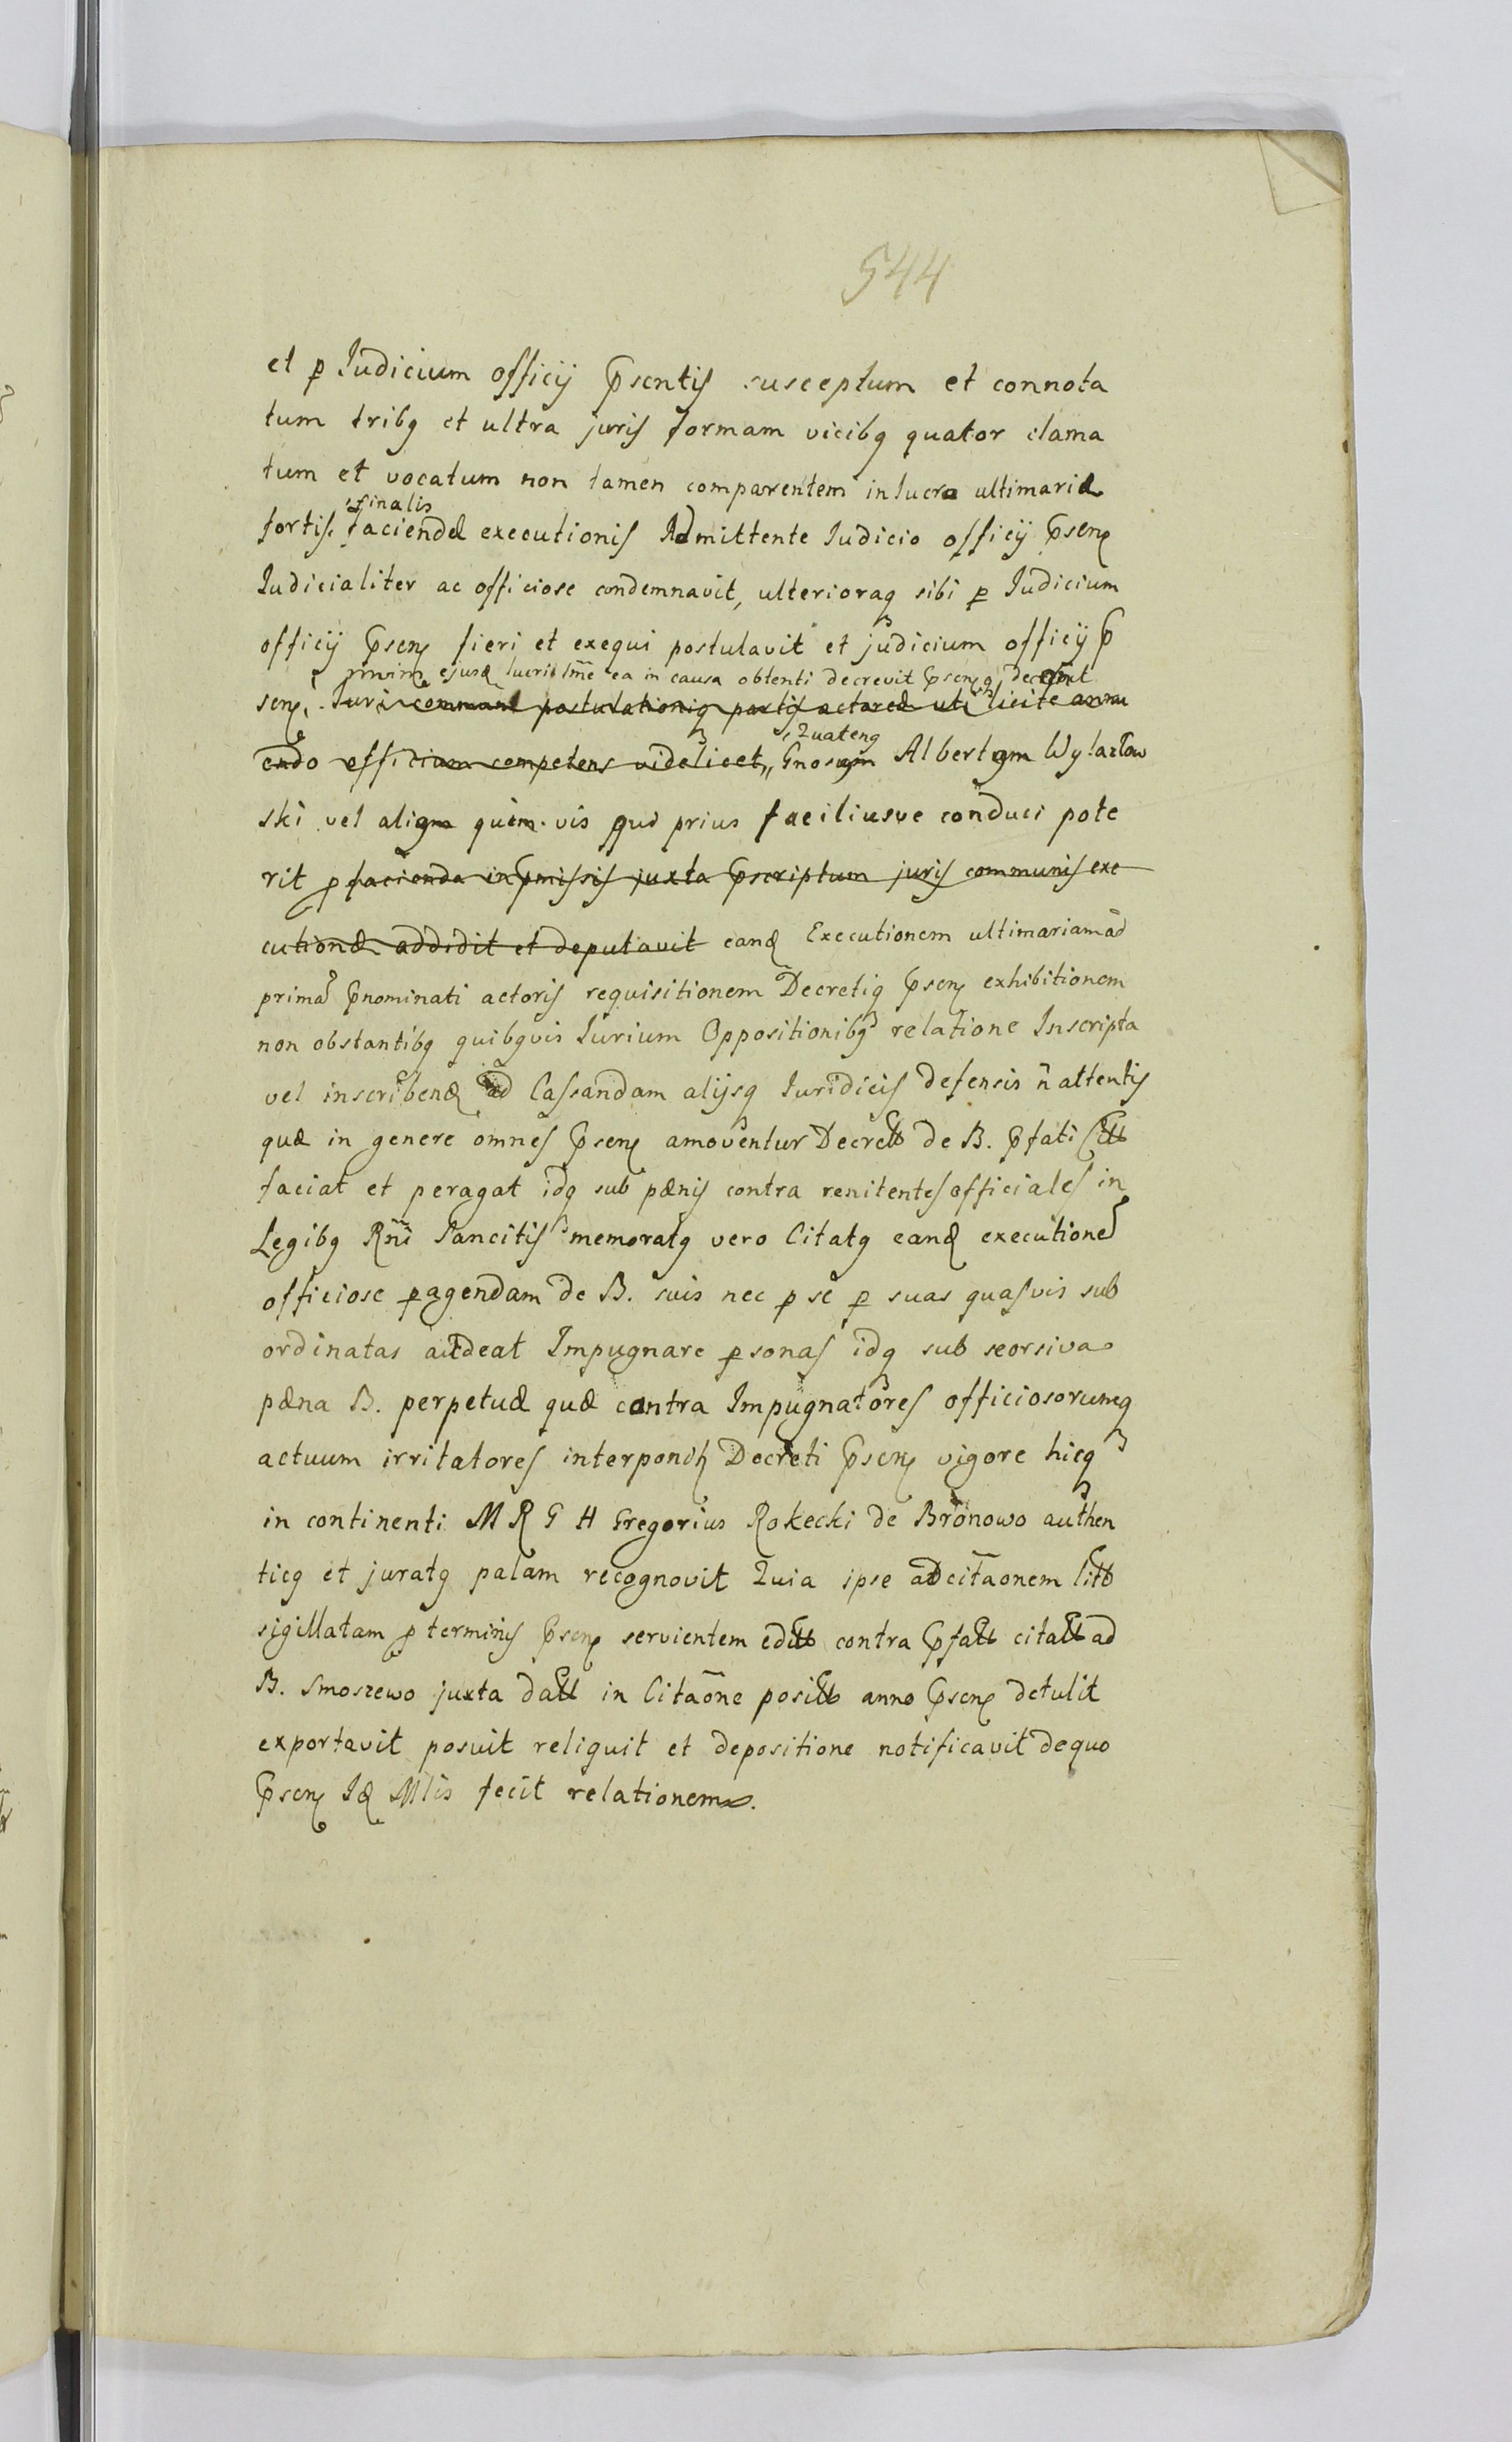 544
et p Judicium officij Psentis susceptum et connota
tum tribq et ultra juris formam vicibq quator clama
tum et vocatum non tamen comparentem in lucro ultimariæ
finalis
fortis faciendæ executionis Admittente Judicio officij Psen
Judicialiter ac officiose condemnavit, ulterioraq sibi p Judicium
officij Psen fieri et exequi postulavit et judicium officij P
ejusd lucri in ea in causa obtenti decrevit Psenq
sen, Juri postulationiq partis actoreæ uti licite annu
Quatenq
endo officium competens videlicet, Gnosum Albertqm Wylazłow
ski vel aliqm quem vis qui prius faciliusve conduci pote
rit p facienda in Pmissis juxta Pscriptum juris communis exe
cutionæ addidit et deputavit eand Executionem ultimariam ad
prima Pnominati actoris requisitionem Decretiq Psen exhibitionem
non obstantibq quibqvis Jurium Oppositionibq relatione Inscripta
vel inscribend ad Cassandam alijsq Juridicis defensis n attentis
quæ in genere omnes Psen amoventur Decretto de B. Pfati Citt
faciat et peragat idq sub pænis contra renitentes officiales in
Legibq Rni Sancitis memoratq vero Citatq eand executione
officiose pagendam de B. suis nec p se p suas quasvis sub
ordinatas audeat Impugnare psonas idq sub seorsiva
pæna B. perpetuæ quæ contra Impugnatores officiosorumq
actuum irritatores interponit Decreti Psen vigore hicq
in continenti M R G H Gregorius Rokecki de Bronowo authen
ticq et juratq palam recognovit Quia ipse ad citaonem litt
sigillatam p terminis Psen servientem editt contra Pfatt citatt ad
B. Smoszewo juxta datt in Citaone positt anno Psen detulit
exportavit posuit reliquit et depositione notificavit de quo
Psen Jd Mlis fecit relationem.